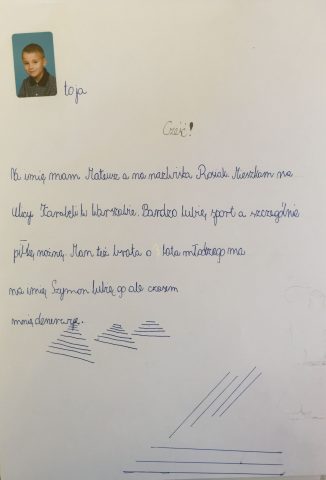 to ja
Cześć!
Na imię mam Mateusz a na nazwisko Rosiak. Mieszkam na
ulicy w Warszawie. Bardzo lubię sport a szczególnie
piłkę nożną. Mam też brata o lata młodszego ma
na imię Szymon lubię go ale czasem
mnie denerwuje.